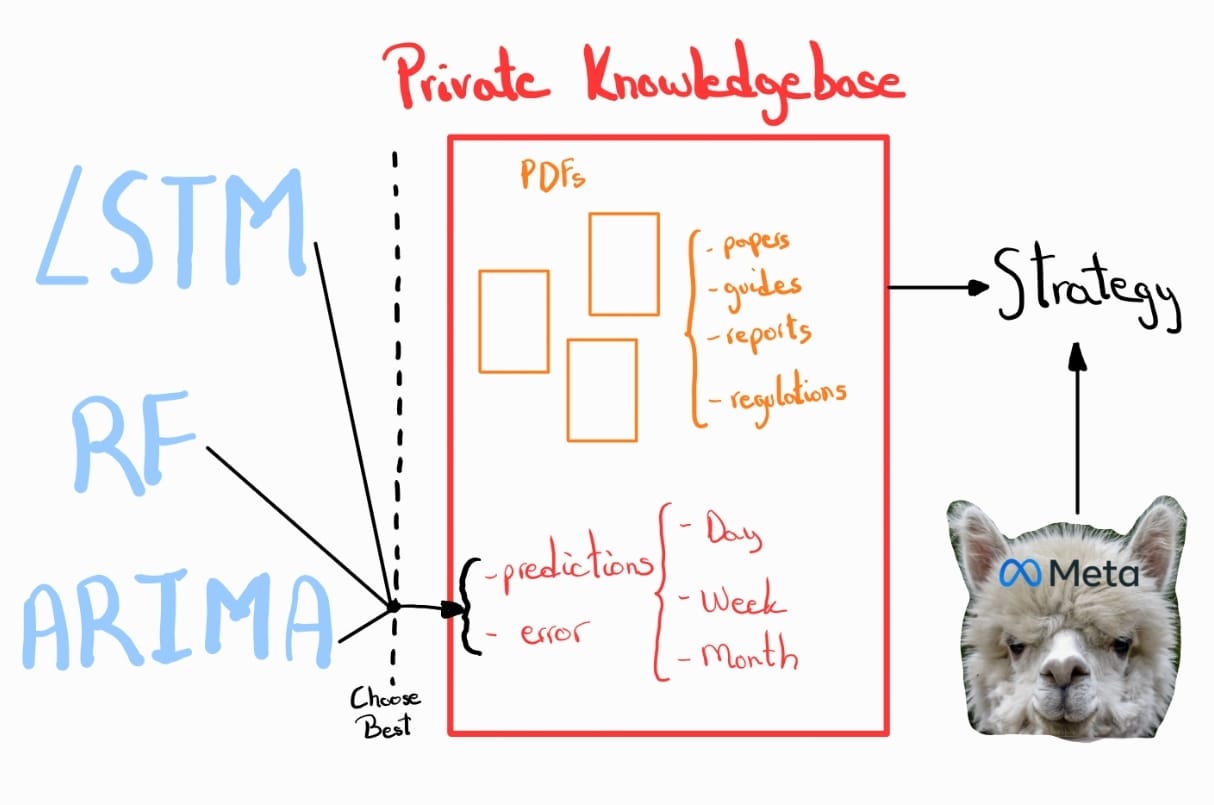 Private Knowledgebase
LSTM
RF
ARIMA
Choose
Best
PDFs
- papers
- guides
- reports
- regulations
- predictions
- error
- Day
- Week
- Month
Strategy
Meta